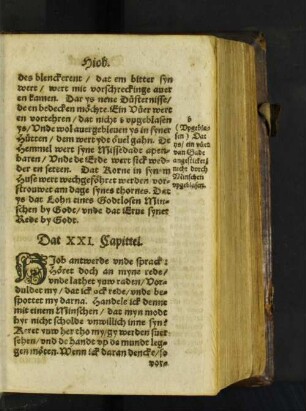 Hiob.
des blenckerent / dat em bitter syn
wert / wert mit vorschreckinge auer
en kamen. Dar ys nene Düsternisse /
de en bedecken möchte. Ein Vüer wert
en vortehren / dat nicht b vpgeblasen
ys / Vnde wol auergebleuen ys in syner
Hütten / dem wert ydt öuel gahn. De
Hemmel wert syne Missedade apen-
baren / Vnde de Erde wert sick wed-
der en setten. Dat Korne in synem
Huse wert wechgeföhret werden vor-
strouwet am dage synes thornes. Dat
ys dat Lohn eines Godtlosen Min-
schen by Godt / vnde dat Erue syner
Rede by Godt.
b
(Vpgebla-
sen) Dat
ys / ein vüer
van Gade
angesticken /
nicht dorch
Minschen
vpgeblasen.
Dat XXI. Capittel.
HJob antwerde vnde sprack:
Höret doch an myne rede /
vnde lathet yuw raden / Vor-
duldet my / dat ick ock rede / vnde be-
spottet my darna. Handele ick denne
mit einem Minschen / dat myn modt
hyr nicht scholde vnwillich inne syn?
Keret yuw her tho my / gy werden suer
sehen / vnd de handt vp de mundt leg-
gen möten. Wenn ick daran dencke / so
vor-